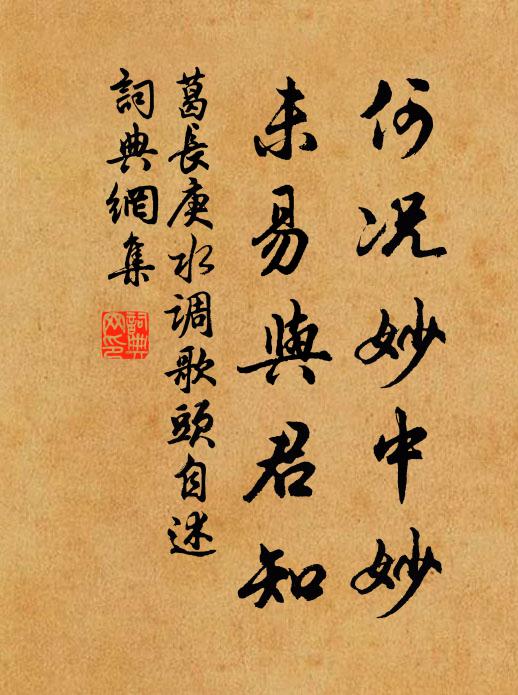 何况妙中妙
未易與君知
葛長庚水调歌頭自述
詞典網集
詞典网印